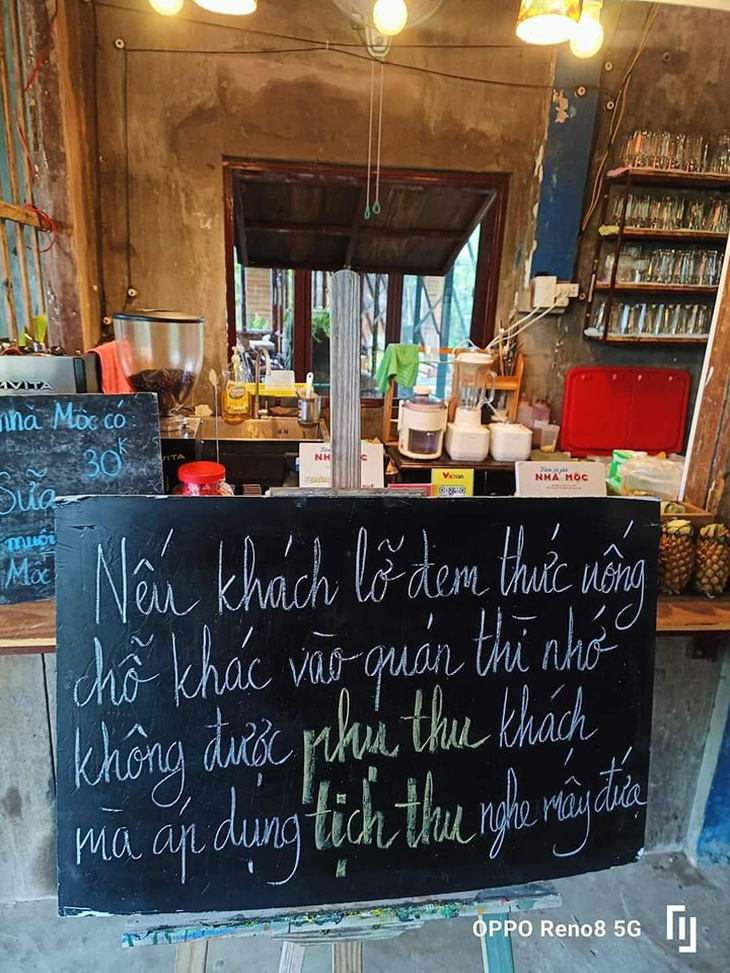 AVITA
nhà Mộc có:
30K
Sữa
muối
Mộc
NHÀ MỘC
VIETQR
NHÀ MỘC
Nếu khách lỡ đem thức uống
chỗ khác vào quán thì nhớ
không được phụ thu khách
mà áp dụng tịch thu nghe mấy đứa
OPPO Reno8 5G